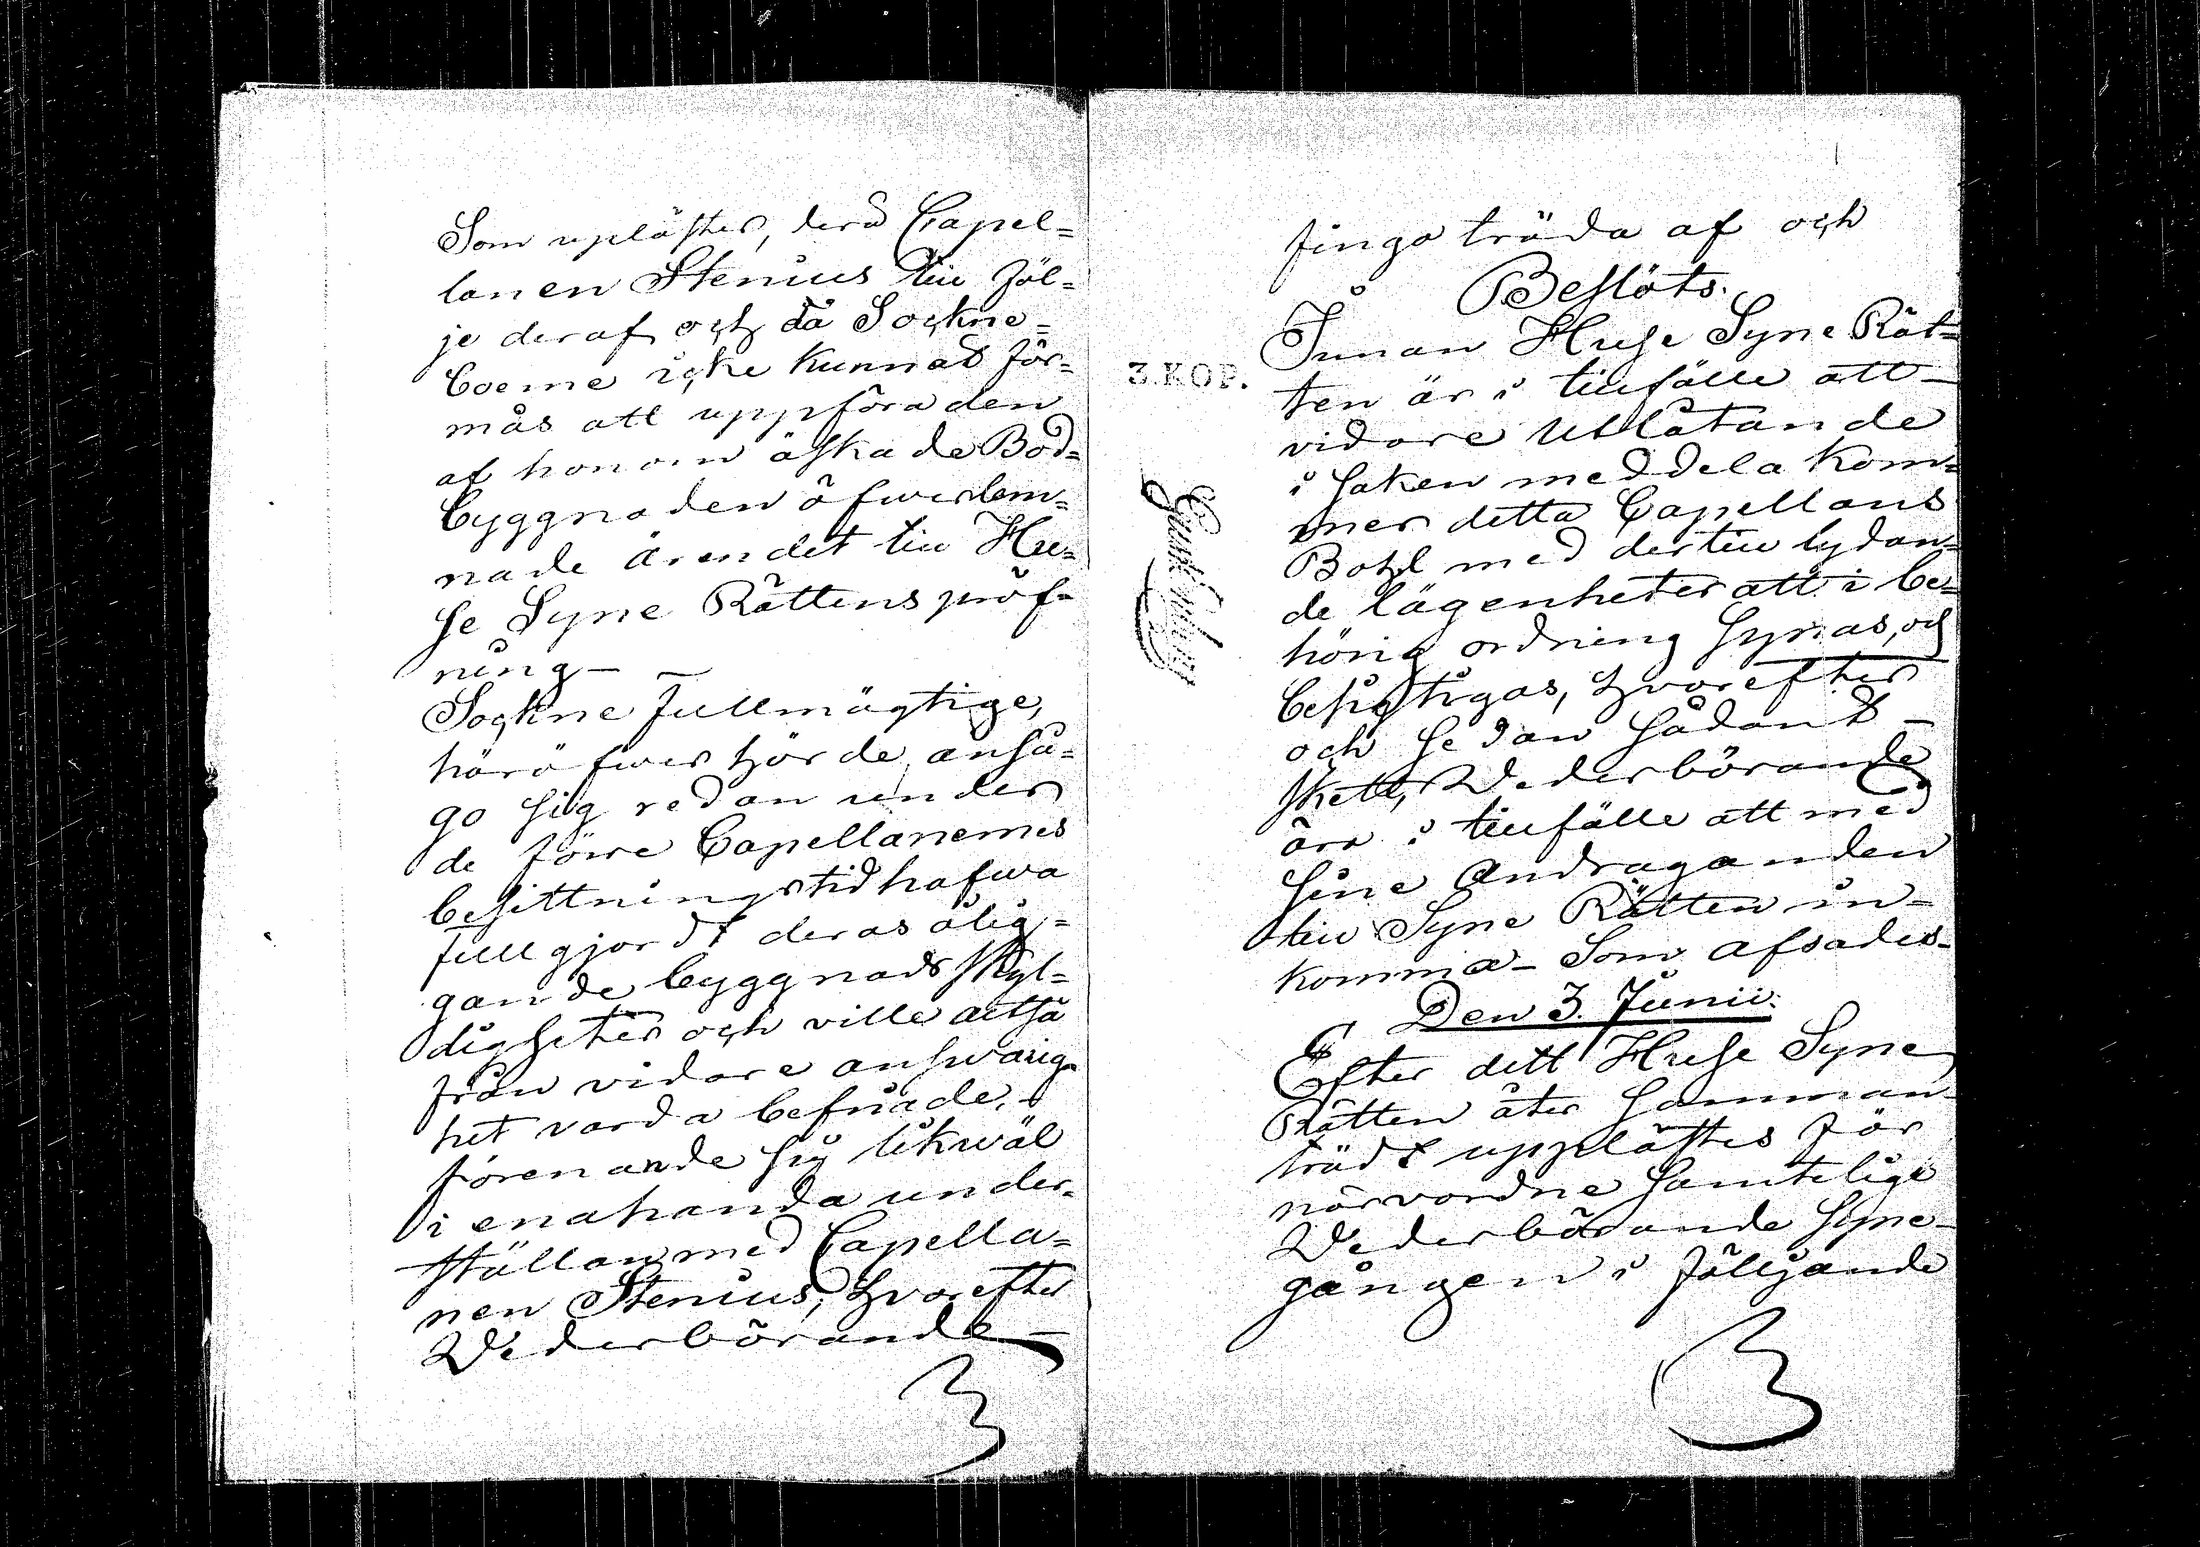 Som uplästes, derå Capel=
lanen Stenius till föl=
je deraf och då Sockne=
boerne icke kunnat för=
mås att uppföra den
af honom äskade Bod=
byggnaden öfwerlem=
nade ärendet till Hu=
se Syne Rättens pröf=
ning—
Sockne Fullmägtige,
häröfwer hörde, anså=
go sig redan under
de förre Capellanernes
besittningstid hafwa
fullgjordt deras ålig=
gande byggnads skyl=
digheter och ville altså
från vidare answarig=
het varda befriade,
förenande sig likwäl
i enahanda under=
ställan med Capella=
nen Stenius, hvarefter
Wederbörande—
fingo träda af och
Beslöts.
Innan Huse Syne Rät=
3.KOP.
ten är i tillfälle att—
vidare Utlåtande
i saken meddela kom=
mer detta Capellans
Bohl med dertill lydan=
de lägenheter att i be=
hörig ordning synas, och
besigtigas, hvarefter
och sedan sådant—
skett, Wederbörande
äro i tillfälle att med
sine Andraganden
till Syne Rätten in=
komma— Som afsades—
Den 3. Junii.
Efter det Huse Syne
Rätten åter samman=
trädt upplästes för
närvordne samtelige
Wederbörande Syne=
gången i följjande